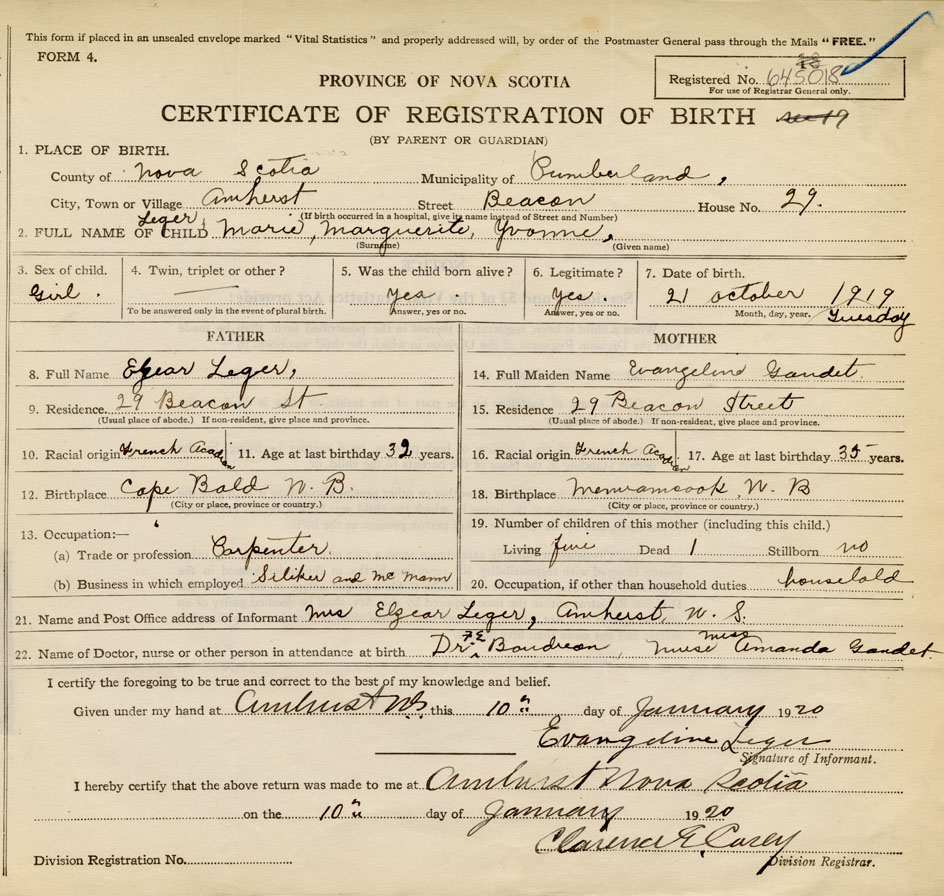 This form if placed in an unsealed envelope marked "Vital Statistics" and properly addressed will, by order of the Postmaster General pass through the Mails "FREE."
FORM 4.
Registered No. 645018
For use of Registrar General only.
PROVINCE OF NOVA SCOTIA
CERTIFICATE OF REGISTRATION OF BIRTH
(BY PARENT OR GUARDIAN)
1. PLACE OF BIRTH.
County of Nova Scotia Municipality of Cumberland,
City, Town or Village Amherst Street Beacon House No. 29.
(If birth occurred in a hospital, give its name instead of Street and Number)
2. FULL NAME OF CHILD Leger, Marie, Marguerite, Yvonne,
(Surname) (Given name)
3. Sex of child. 4. Twin, triplet or other? 5. Was the child born alive? 6. Legitimate? 7. Date of birth.
Girl. yes. Yes. 21 october 1919
To be answered only in the event of plural birth. Answer, yes or no. Answer, yes or no. Month, day, year. Tuesday
FATHER MOTHER
8. Full Name Elzear Leger, 14. Full Maiden Name Evangeline Gaudet.
9. Residence. 29 Beacon St 15. Residence 29 Beacon Street
(Usual place of abode.) If non-resident, give place and province. (Usual place of abode.) If non-resident, give place and province.
10. Racial origin French Acadian 11. Age at last birthday 32 years. 16. Racial origin French Acadian 17. Age at last birthday 35 years.
12. Birthplace Cape Bald N. B. 18. Birthplace Memramcook, N. B
(City or place, province or country.) (City or place, province or country.)
13. Occupation:— 19. Number of children of this mother (including this child.)
(a) Trade or profession Carpenter. Living five Dead 1 Stillborn no
(b) Business in which employed Siliker and Mc Mann 20. Occupation, if other than household duties household
21. Name and Post Office address of Informant Mrs Elzear Leger, Amherst, N. S.
22. Name of Doctor, nurse or other person in attendance at birth Dr. F. E Boudreau, nurse miss Amanda Gaudet.
I certify the foregoing to be true and correct to the best of my knowledge and belief.
Given under my hand at Amherst NS. this 10" day of January 1920
Evangeline Leger
Signature of Informant.
I hereby certify that the above return was made to me at Amherst Nova Scotia
on the 10" day of January 1920
Clarence E. Casey
Division Registration No. Division Registrar.